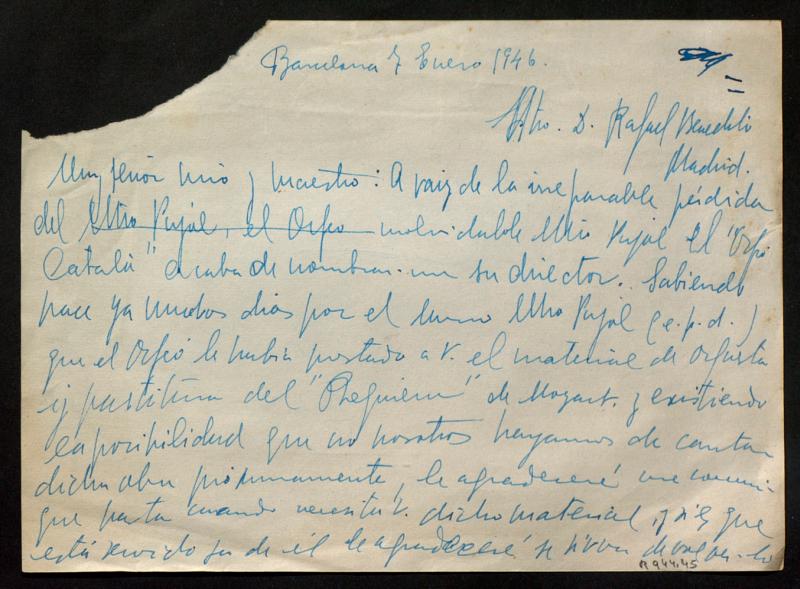 Barcelona 7 Enero 1946.
Mtro. D. Rafael Benedito
Madrid.
Muy señor mío y maestro: A raiz de la irreparable pérdida
del Mtro Pujol, el Orfeo inolvidable Mtro Pujol el "Orfeó
Català" acaba de nombrar-me su director. Sabiendo
hace ya muchos dias por el mismo Mtro Pujol (e.p.d.)
que el Orfeó le habia prestado a V. el material de Orquesta
y partitura del "Requiem" de Mozart. y existiendo
la posibilidad que nosotros hayamos de cantar
dicha obra próximamente, le agradeceré me comuni-
que hasta cuando necesita V. dicho material, y si es que
está servido ya de él le agradeceré se sirva devolver-lo
R 944.45